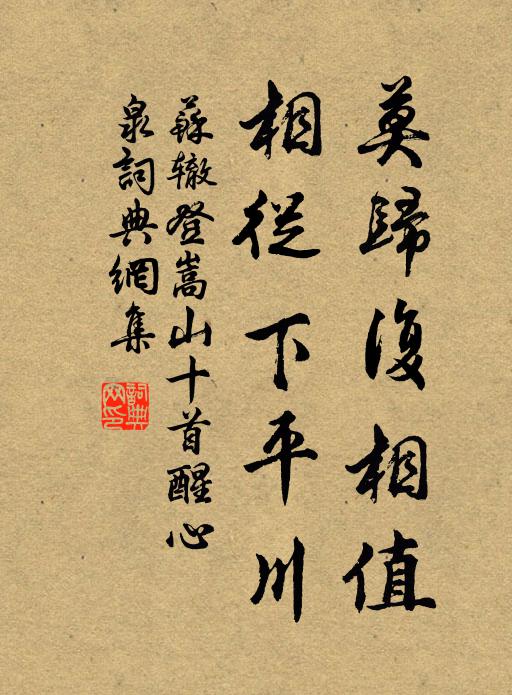 莫歸復相值
相從下平川
蘇辙登嵩山十首醒心
泉詞典網集
詞典
网印